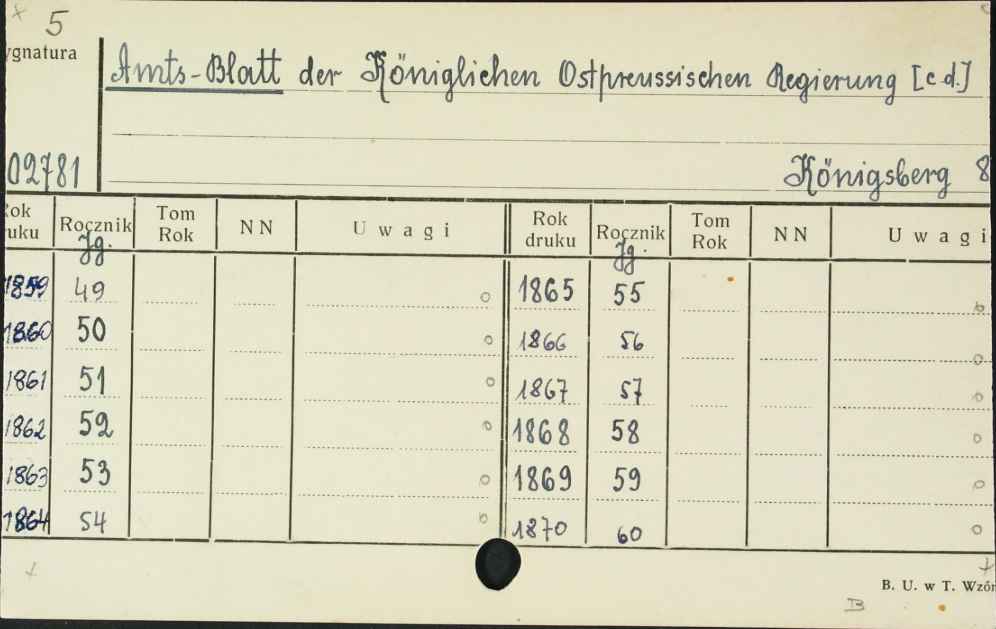 5
ygnatura
Amts-Blatt der Königlichen Ostpreussischen Regierung [c.d.]
02781
Königsberg 8
Rok druku Rocznik Jg. Tom Rok NN Uwagi Rok druku Rocznik Jg. Tom Rok NN Uwagi
1859 49 1865 55
1860 50 1866 56
1861 51 1867 57
1862 52 1868 58
1863 53 1869 59
1864 54 1870 60
B. U. w T. Wzór
B